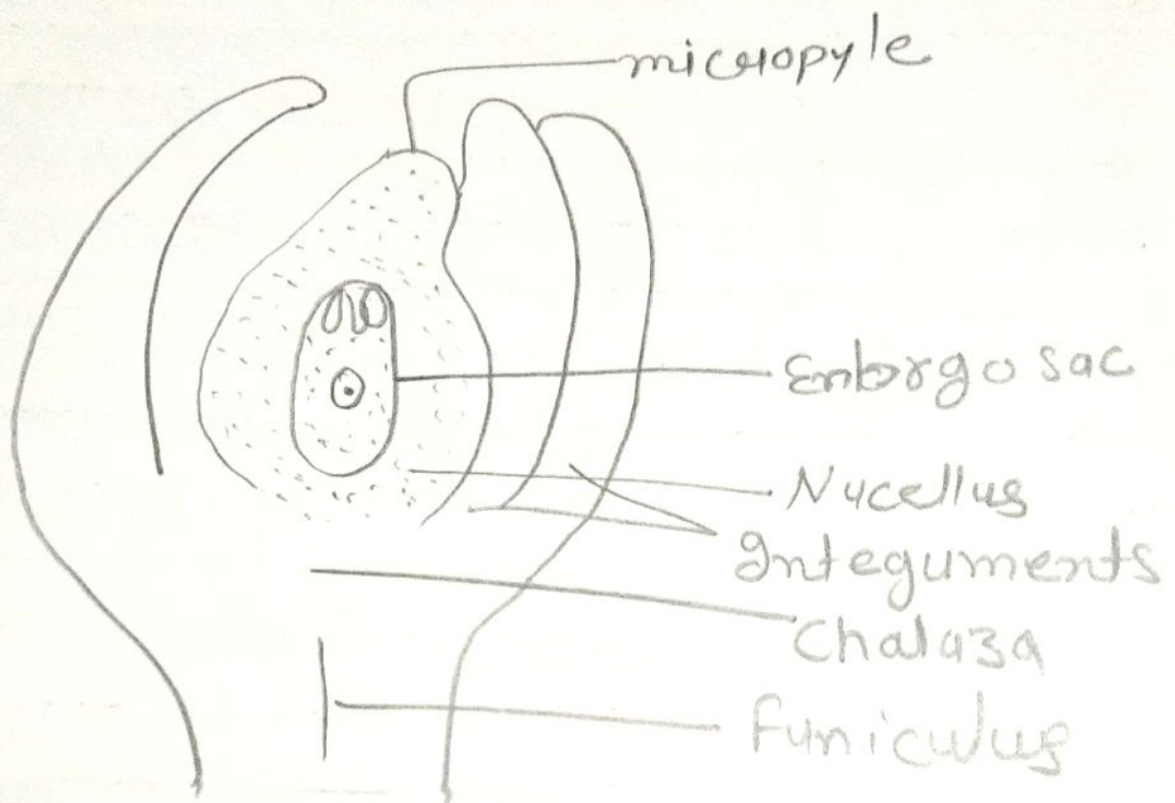 micropyle
Enbrgo sac
Nucellus
Integuments
Chalaza
Funiculus